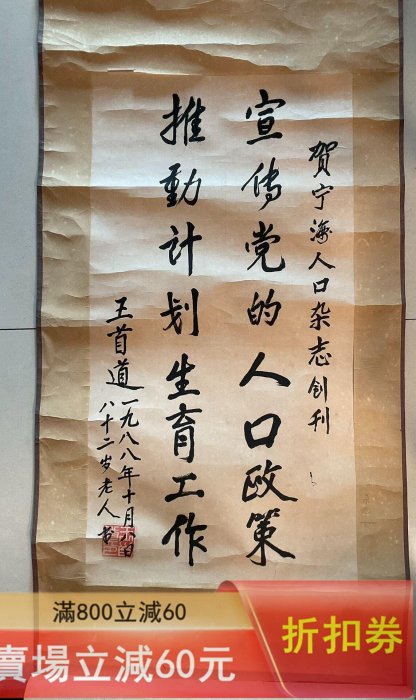 贺宁海人口杂志创刊
宣传党的人口政策
推動计划生育工作
王首道一九八八年十月
八十二岁老人书
滿800立減60
賣場立減60元
折扣券